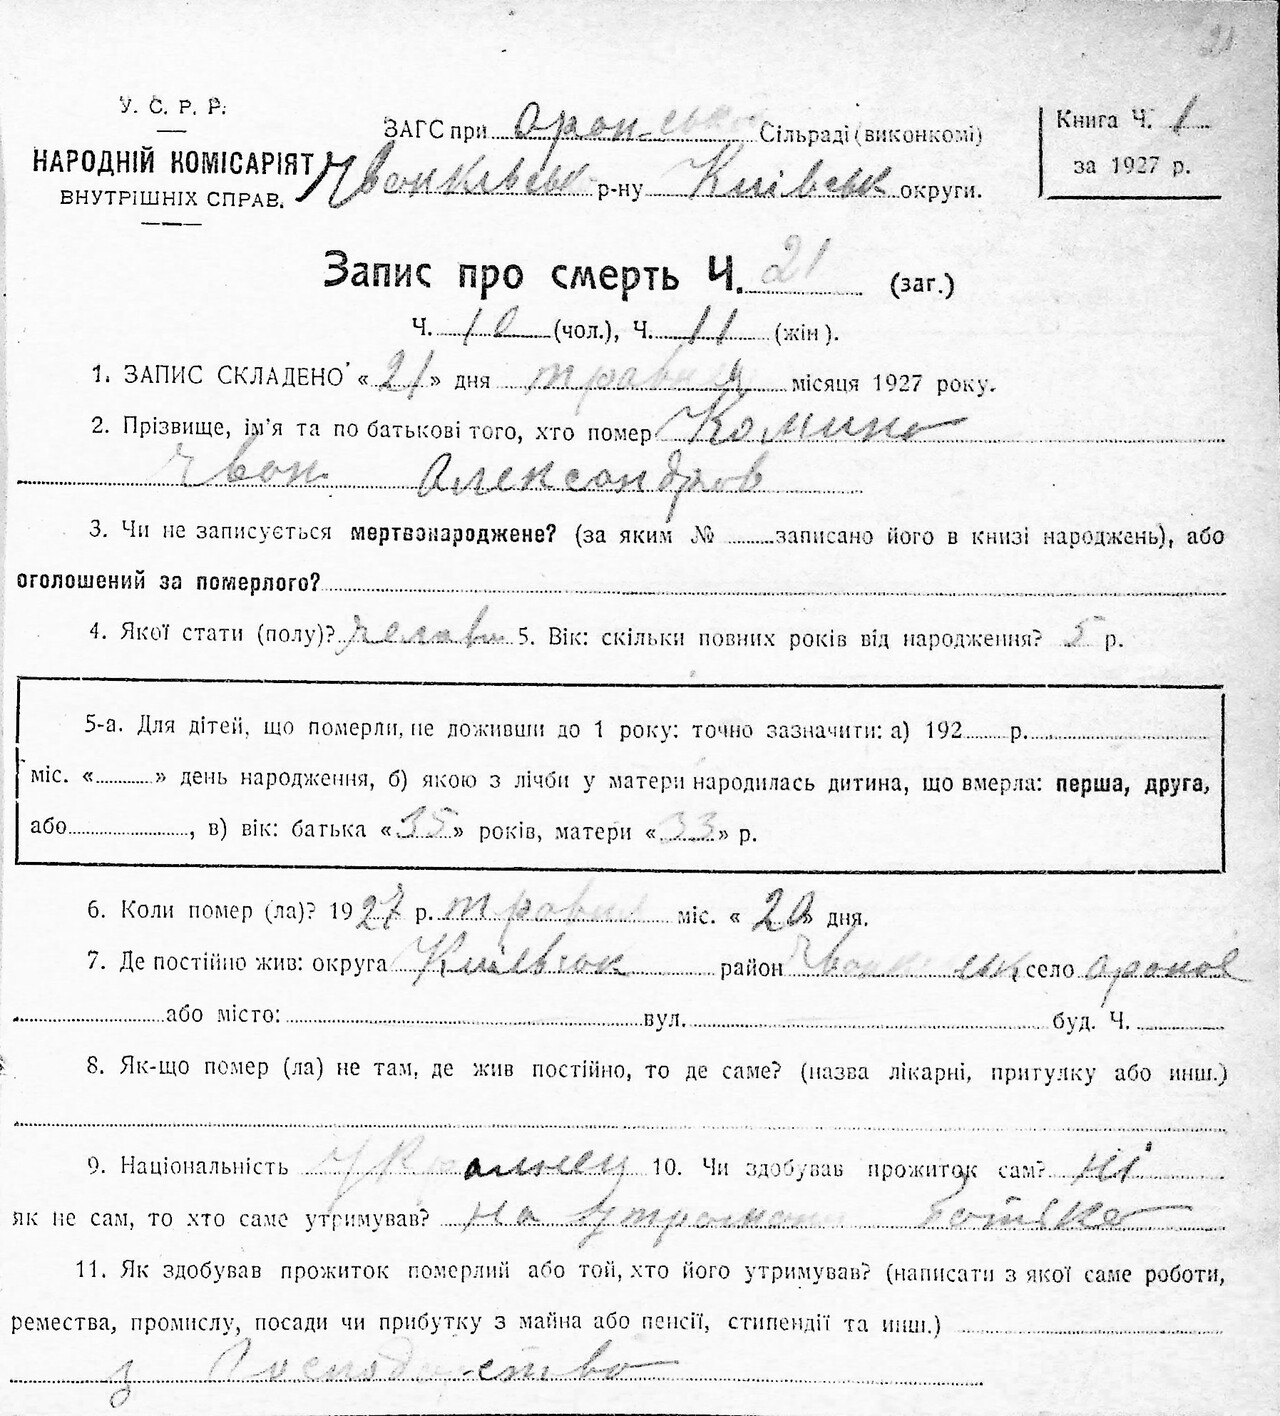 21
У. С. Р. Р.
НАРОДНІЙ КОМІСАРІЯТ
ВНУТРІШНІХ СПРАВ.
ЗАГС при Сільраді (виконкомі)
р-ну Київськ округи.
Книга Ч. 1
за 1927 р.
Запис про смерть Ч. 21 (заг.)
Ч. 10 (чол.), Ч. 11 (жін).
1. ЗАПИС СКЛАДЕНО «21» дня травня місяця 1927 року.
2. Прізвище, ім'я та по батькові того, хто помер
Александров
3. Чи не записується мертвонароджене? (за яким № ........записано його в книзі народжень), або
оголошений за померлого?
4. Якої стати (полу)? 5. Вік: скільки повних років від народження? 5 р.
5-а. Для дітей, що померли, не доживши до 1 року: точно зазначити: а) 192........р.
міс. «............» день народження, б) якою з лічби у матери народилась дитина, що вмерла: перша, друга,
або................, в) вік: батька «35» років, матери «33» р.
6. Коли помер (ла)? 1927 р. травня міс. «20» дня.
7. Де постійно жив: округа район село
або місто: вул. буд. Ч.
8. Як-що помер (ла) не там, де жив постійно, то де саме? (назва лікарні, притулку або инш.)
9. Національність 10. Чи здобував прожиток сам? ні
як не сам, то хто саме утримував? на
11. Як здобував прожиток померлий або той, хто його утримував? (написати з якої саме роботи,
ремества, промислу, посади чи прибутку з майна або пенсії, стипендії та инш.)
з